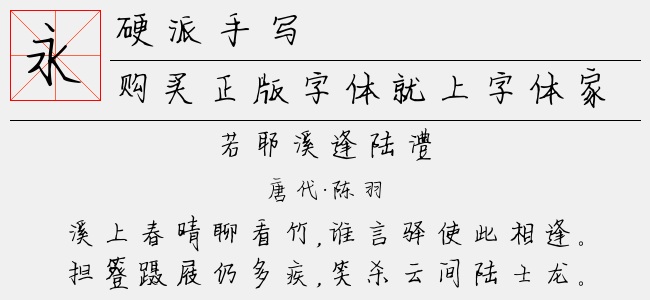 永
硬派手写
购买正版字体就上字体家
若耶溪逢陆澧
唐代·陈羽
溪上春晴聊看竹,谁言驿使此相逢。
担簦蹑屐仍多疾,笑杀云间陆士龙。